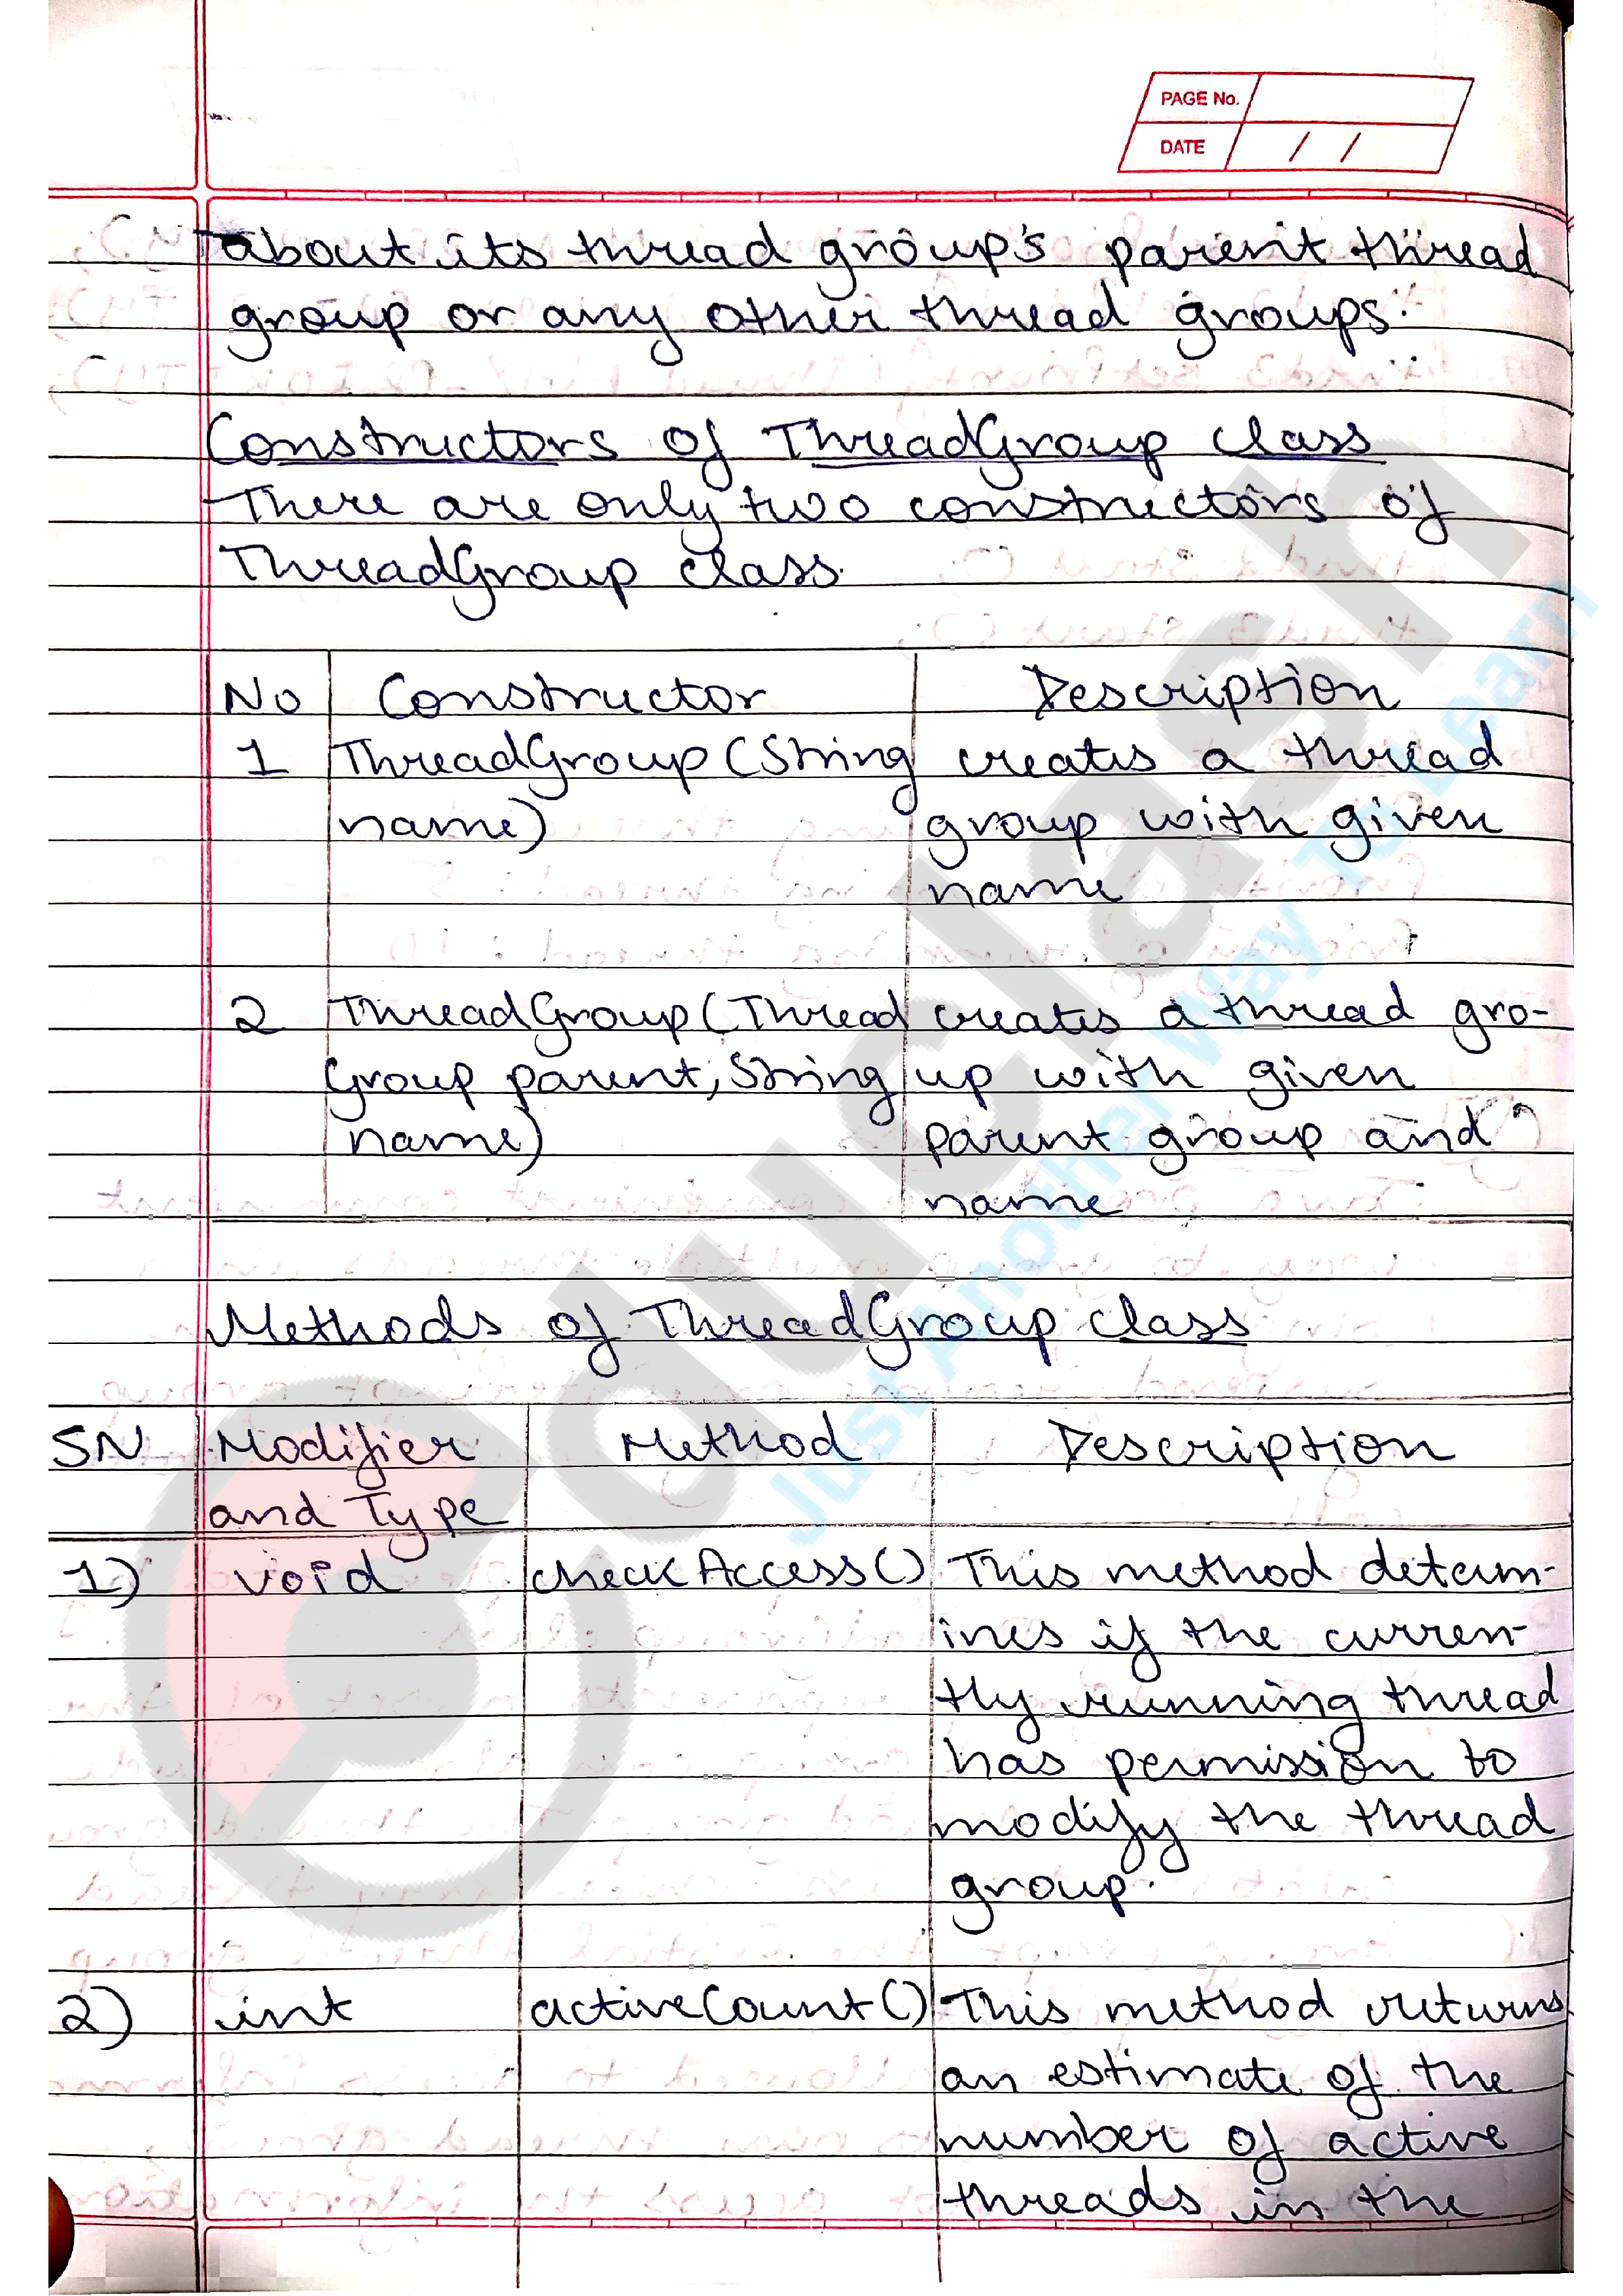 PAGE No.
DATE / /
about its thread group's parent thread
group or any other thread groups.
Constructors of ThreadGroup class
There are only two constructors of
ThreadGroup class.
No Constructor Description
1 ThreadGroup(String creates a thread
name) group with given
name
2 ThreadGroup(Thread creates a thread gro-
Group parent, String up with given
name) parent group and
name
Methods of ThreadGroup class
SN Modifier Method Description
and Type
1) void checkAccess() This method determ-
ines if the curren-
tly running thread
has permission to
modify the thread
group.
2) int activeCount() This method returns
an estimate of the
number of active
threads in the
educlash
Just Another Way To Learn